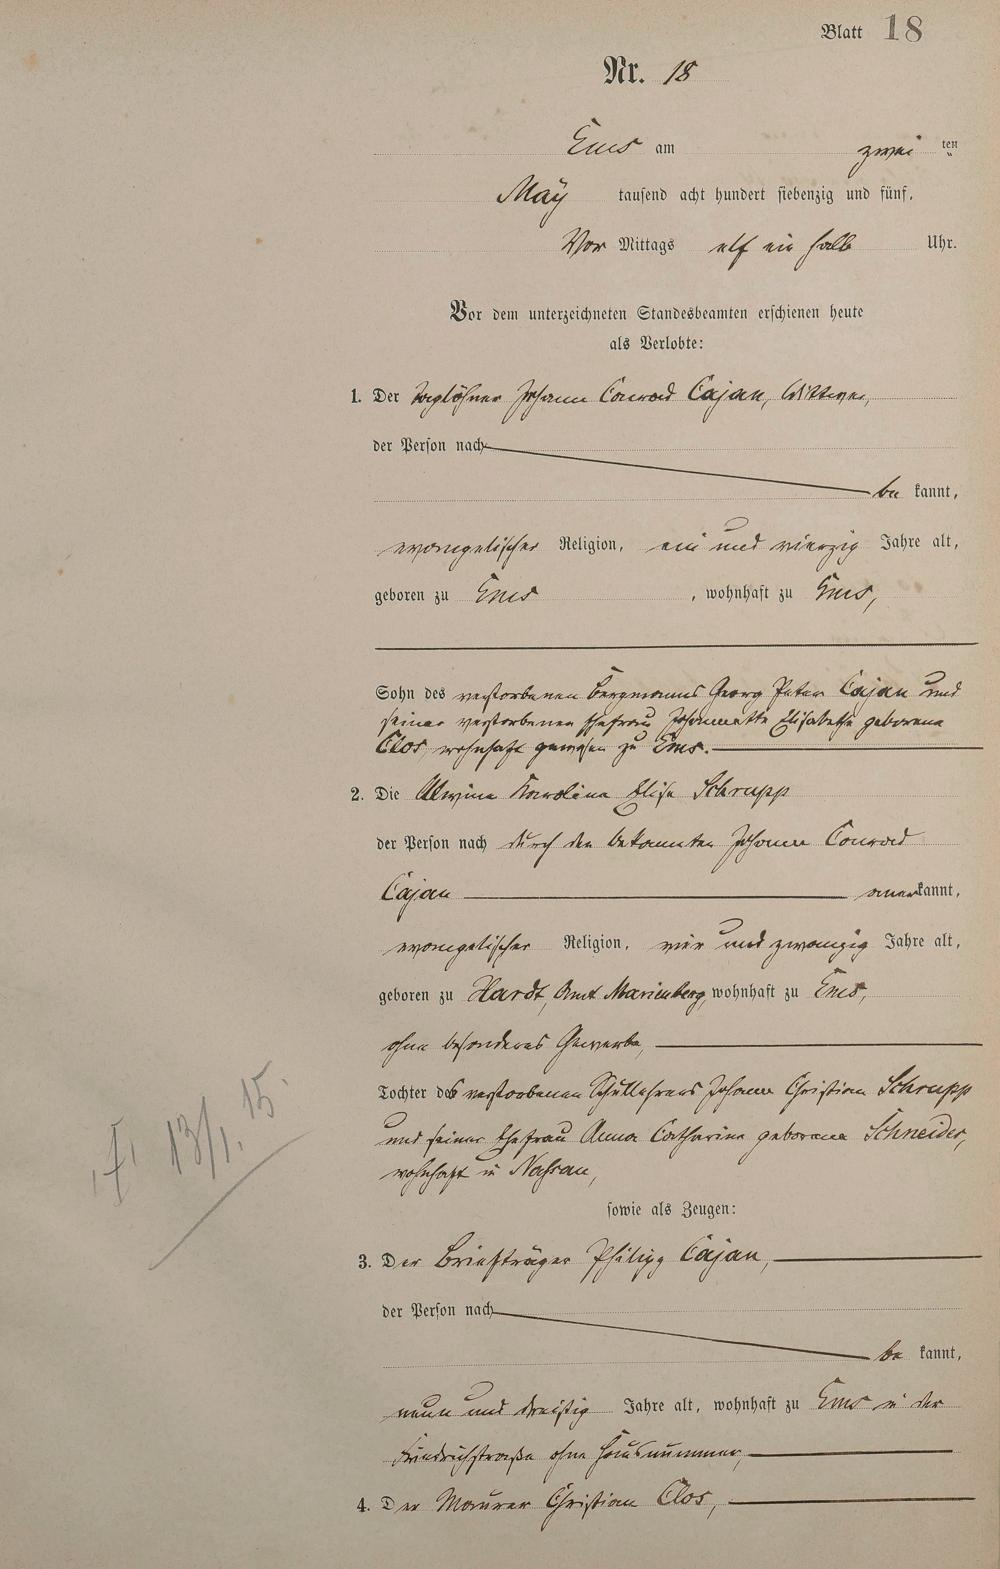 Blatt 18
Nr. 18
Ems am zwei ten
May tausend acht hundert siebenzig und fünf,
Vor Mittags elf ein halb Uhr.
Vor dem unterzeichneten Standesbeamten erschienen heute
als Verlobte:
1. Der Taglöhner Johann Conrad Cajan, Wittwer,
der Person nach
be kannt,
evangelischer Religion, ein und vierzig Jahre alt,
geboren zu Ems, wohnhaft zu Ems,
Sohn des verstorbenen Bergmanns Georg Peter Cajan und
seiner verstorbenen Ehefrau Johannette Elisabethe geborene
Clos wohnhaft gewesen zu Ems.
2. Die Alwine Karoline Elise Schrupp
der Person nach durch den bekannten Johann Conrad
Cajan anerkannt,
evangelischer Religion, vier und zwanzig Jahre alt,
geboren zu Hardt, Amt Marienberg, wohnhaft zu Ems,
ohne besonderes Gewerbe,
Tochter des verstorbenen Schullehrers Johann Christian Schrupp
und seiner Ehefrau Anna Catharine geborene Schneider,
wohnhaft in Nassau,
sowie als Zeugen:
3. Der Briefträger Philipp Cajan,
der Person nach
be kannt,
neun und dreißig Jahre alt, wohnhaft zu Ems in der
Friedrichstraße ohne Hausnummer,
4. Der Maurer Christian Clos,
13/1. 15.